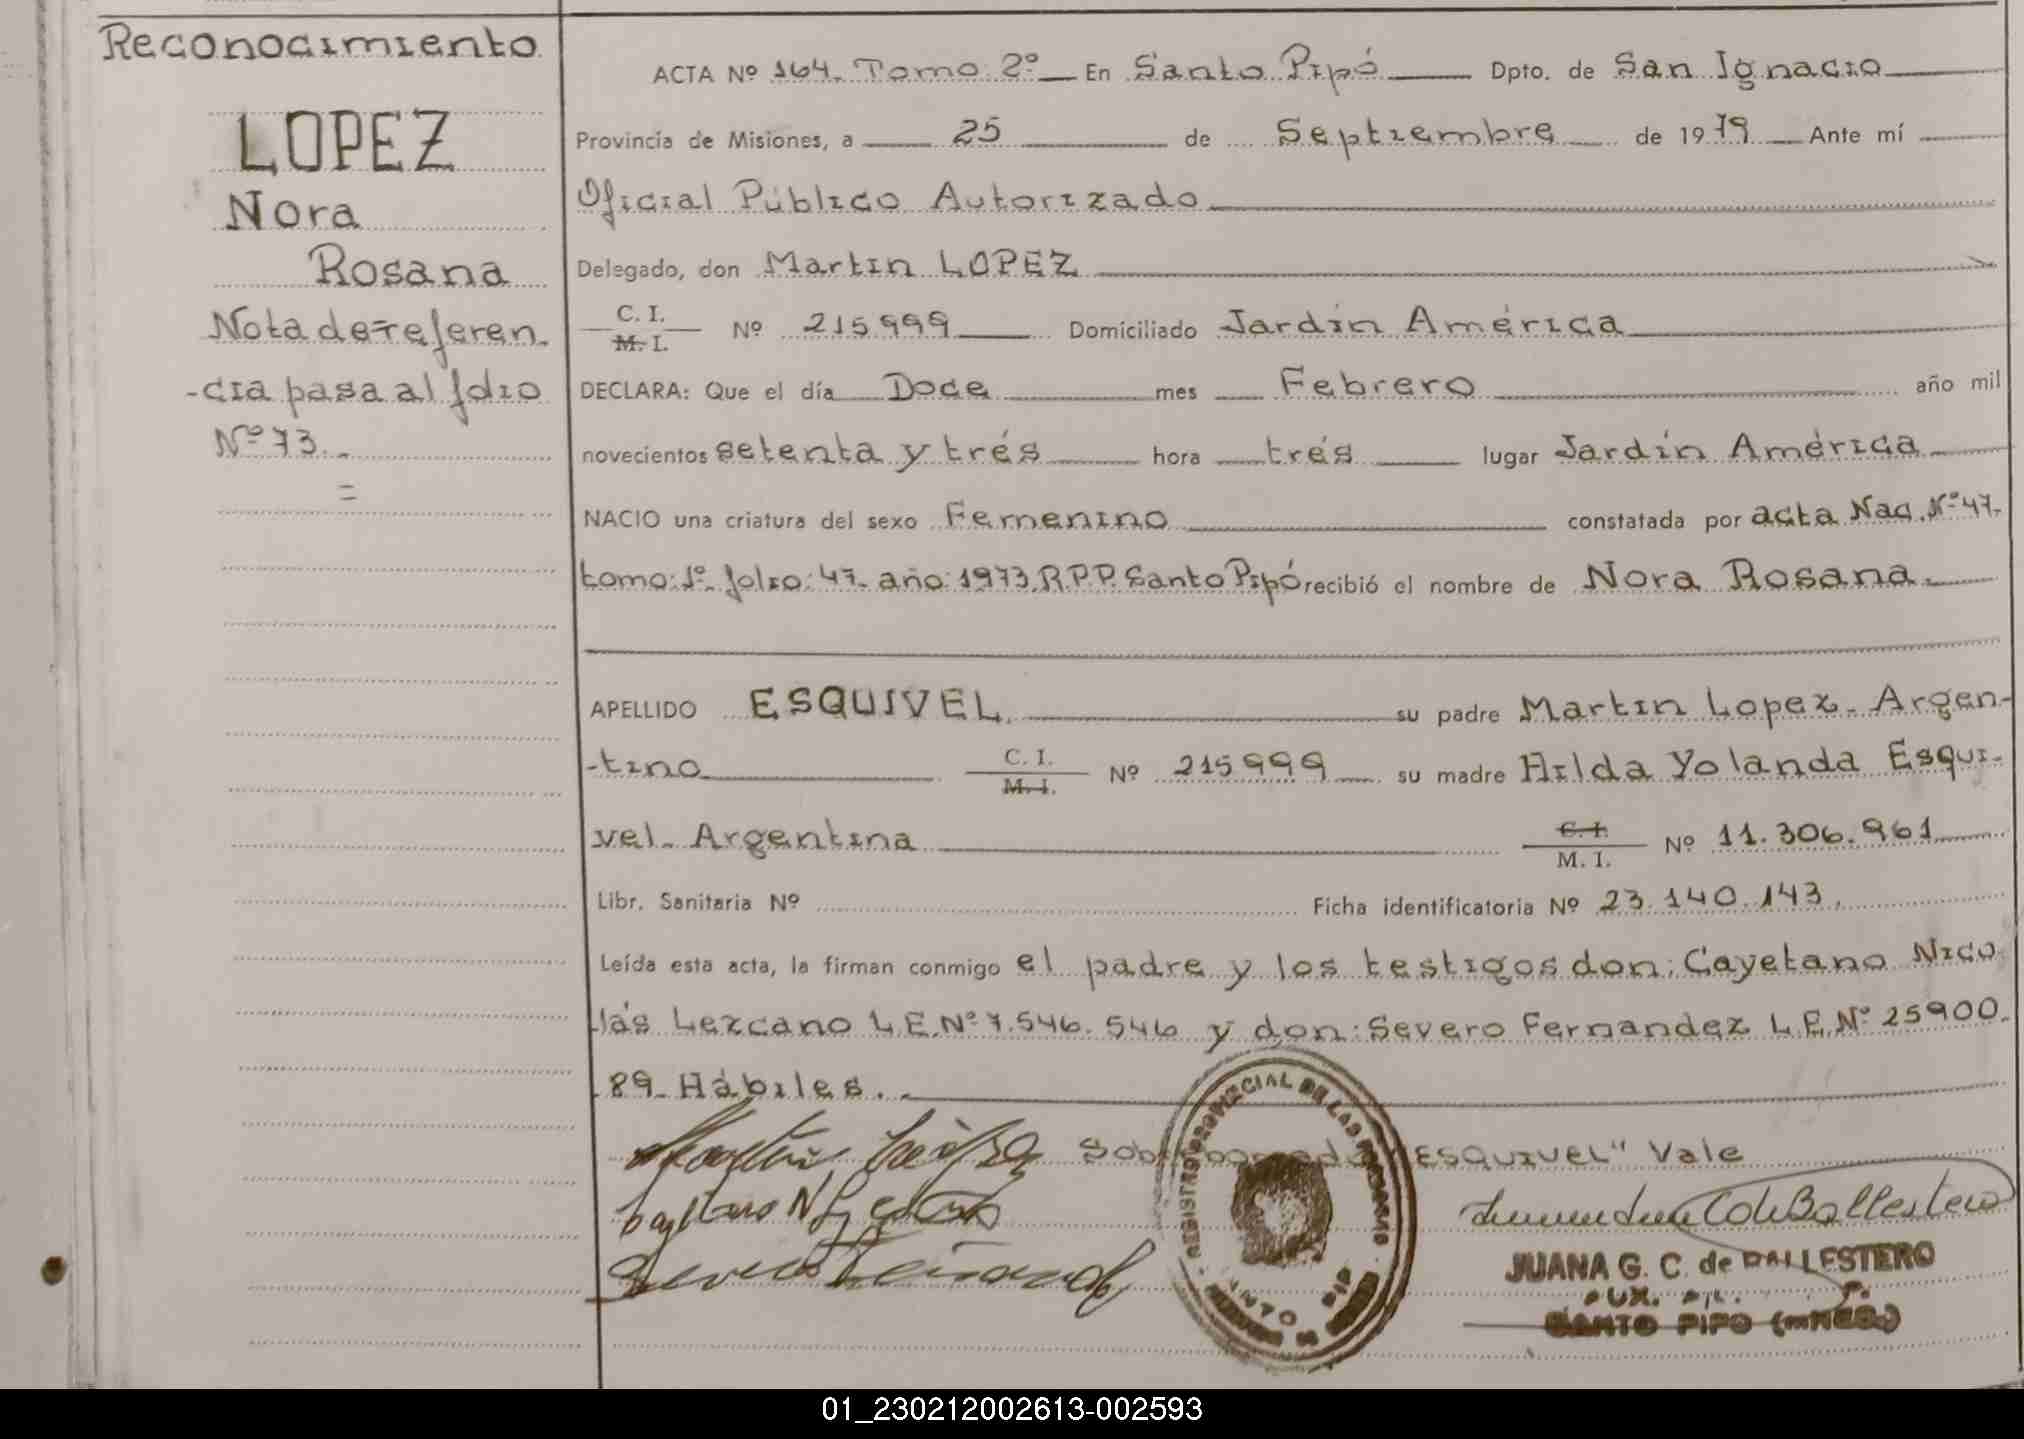 Reconocimiento
LOPEZ
Nora
Rosana
Nota de referen-
-cia pasa al folio
Nº 73.-
=
ACTA Nº 164. Tomo 2º En Santo Pipó Dpto. de San Ignacio
Provincia de Misiones, a 25 de Septiembre de 1979 Ante mí
Oficial Público Autorizado
Delegado, don Martin LOPEZ
C. I.
M. I. Nº 215.999 Domiciliado Jardín América
DECLARA: Que el día Doce mes Febrero año mil
novecientos setenta y trés hora trés lugar Jardín América
NACIO una criatura del sexo Femenino constatada por acta Nac. Nº 47.
tomo: 1º. folio: 47. año: 1973. R.P.P. Santo Pipó recibió el nombre de Nora Rosana.
APELLIDO ESQUIVEL. su padre Martin Lopez. Argen-
-tino C. I. M. I. Nº 215999 su madre Hilda Yolanda Esqui-
vel. Argentina C. I. M. I. Nº 11.306.961
Libr. Sanitaria Nº Ficha identificatoria Nº 23.140.143.
Leída esta acta, la firman conmigo el padre y los testigos don: Cayetano Nico-
lás Lezcano L.E. Nº 7.546.546 y don: Severo Fernandez L.E. Nº 25900.
89. Hábiles.
"ESQUIVEL" Vale
REGISTRO PROVINCIAL DE LAS PERSONAS
JUANA G. C. de BALLESTERO
AUX.
SANTO PIPO (mnes.)
01_230212002613-002593